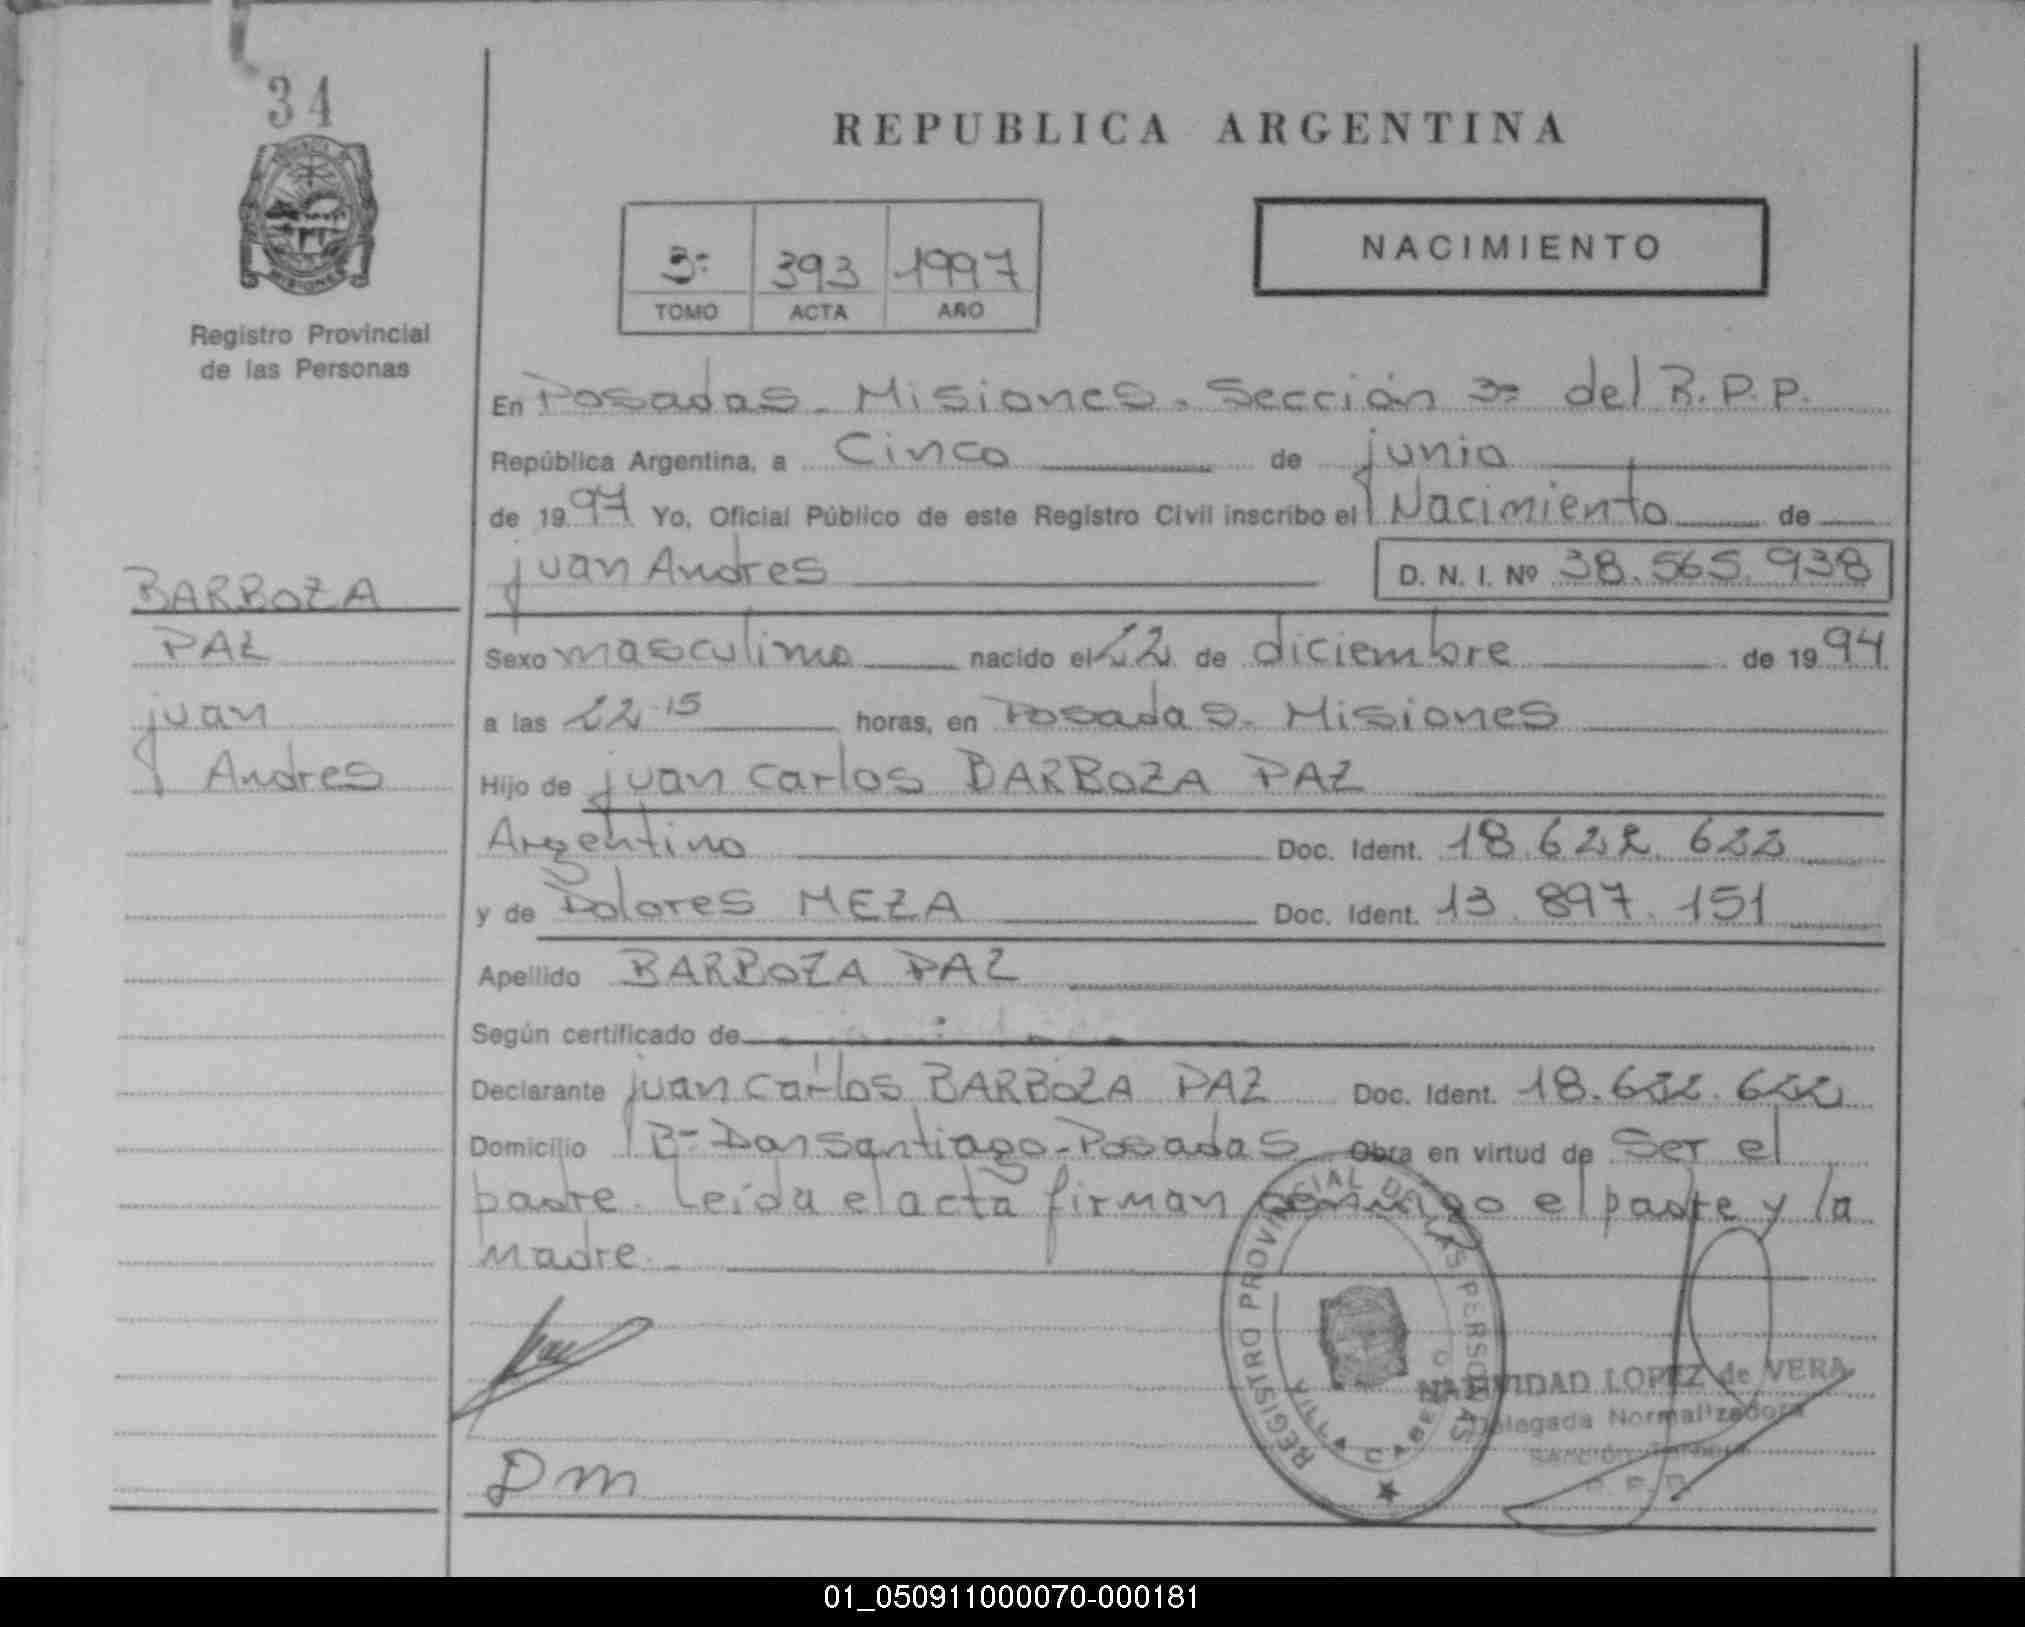 34
Registro Provincial
de las Personas
REPUBLICA ARGENTINA
3º 393 1997
TOMO ACTA AÑO
NACIMIENTO
En Posadas - Misiones. Sección 3º del R.P.P.
República Argentina, a Cinco de junio
de 1997 Yo, Oficial Público de este Registro Civil inscribo el Nacimiento de
juan Andres D. N. I. Nº 38.565.938
BARBOZA
PAZ
juan
Andres
Sexo masculino nacido el 22 de diciembre de 1994
a las 22.15 horas, en Posadas - Misiones
Hijo de juan Carlos BARBOZA PAZ
Argentino Doc. Ident. 18.622.622
y de Dolores MEZA Doc. Ident. 13.897.151
Apellido BARBOZA PAZ
Según certificado de
Declarante juan Carlos BARBOZA PAZ Doc. Ident. 18.622.622
Domicilio Bº Don Santiago - Posadas Obra en virtud de Ser el
padre. Leída el acta firman conmigo el padre y la
madre.
REGISTRO PROVINCIAL DE LAS PERSONAS
VILLA CABELLO
NATIVIDAD LOPEZ de VERA
Delegada Normalizadora
Sección Tercera
R. P. P.
Dm
01_050911000070-000181